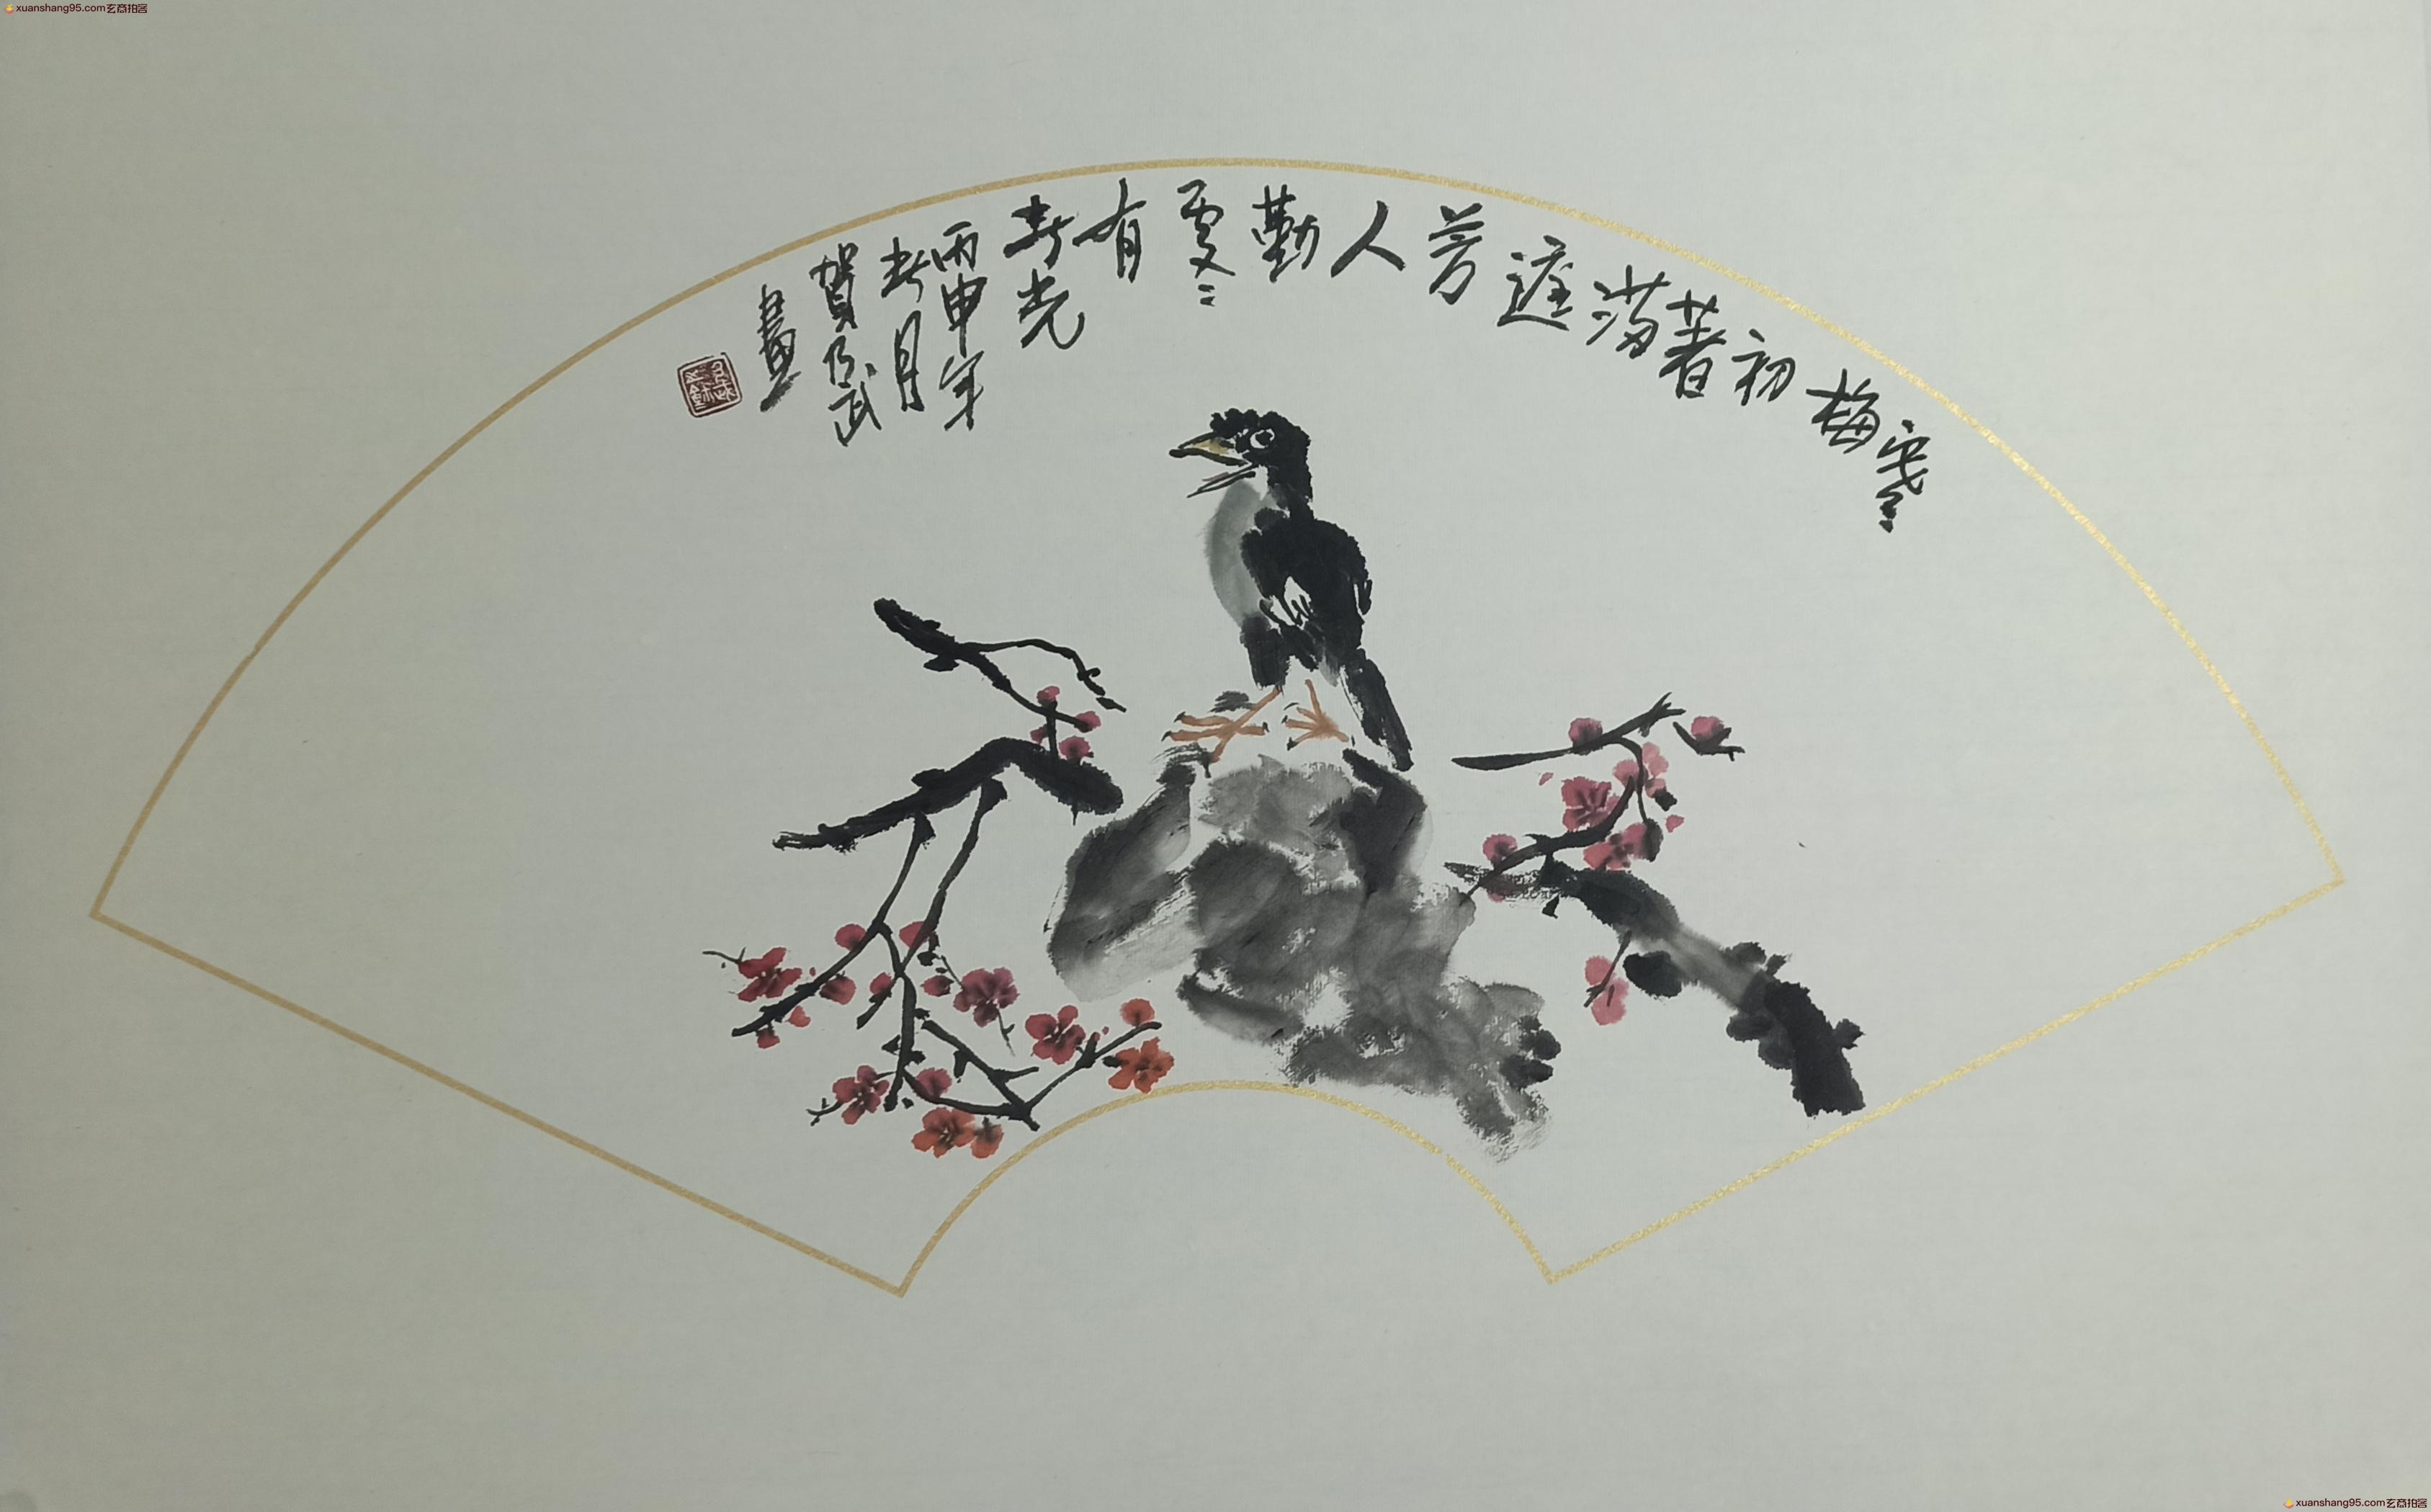 xuanshang95.com玄商拍客
寒
梅
初
著
荡
遮
芳
人
勤
更
有
春光
丙申年
春月
賀成
畫
xuanshang95.com玄商拍客